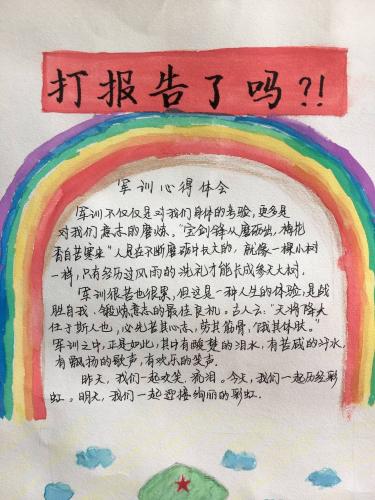 打报告了吗?!
军训心得体会
军训不仅仅是对我们身体的考验,更多是
对我们意志的磨炼。“宝剑锋从磨砺出,梅花
香自苦寒来”人是在不断磨砺中长大的,就像一棵小树
一样,只有多历过风雨的洗礼才能长成参天大树.
军训很苦也很累,但这是一种人生的体验,是战
胜自我、锻炼意志的最佳良机。古人云:“天将降大
任于斯人也,必先苦其心志,劳其筋骨,饿其体肤。”
军训之中,正是如此,其中有酸楚的泪水,有苦咸的汗水,
有飘扬的歌声,有欢乐的笑声.
昨天,我们一起欢笑、流泪。今天,我们一起历经彩
虹。明天,我们一起迎接绚丽的彩虹.